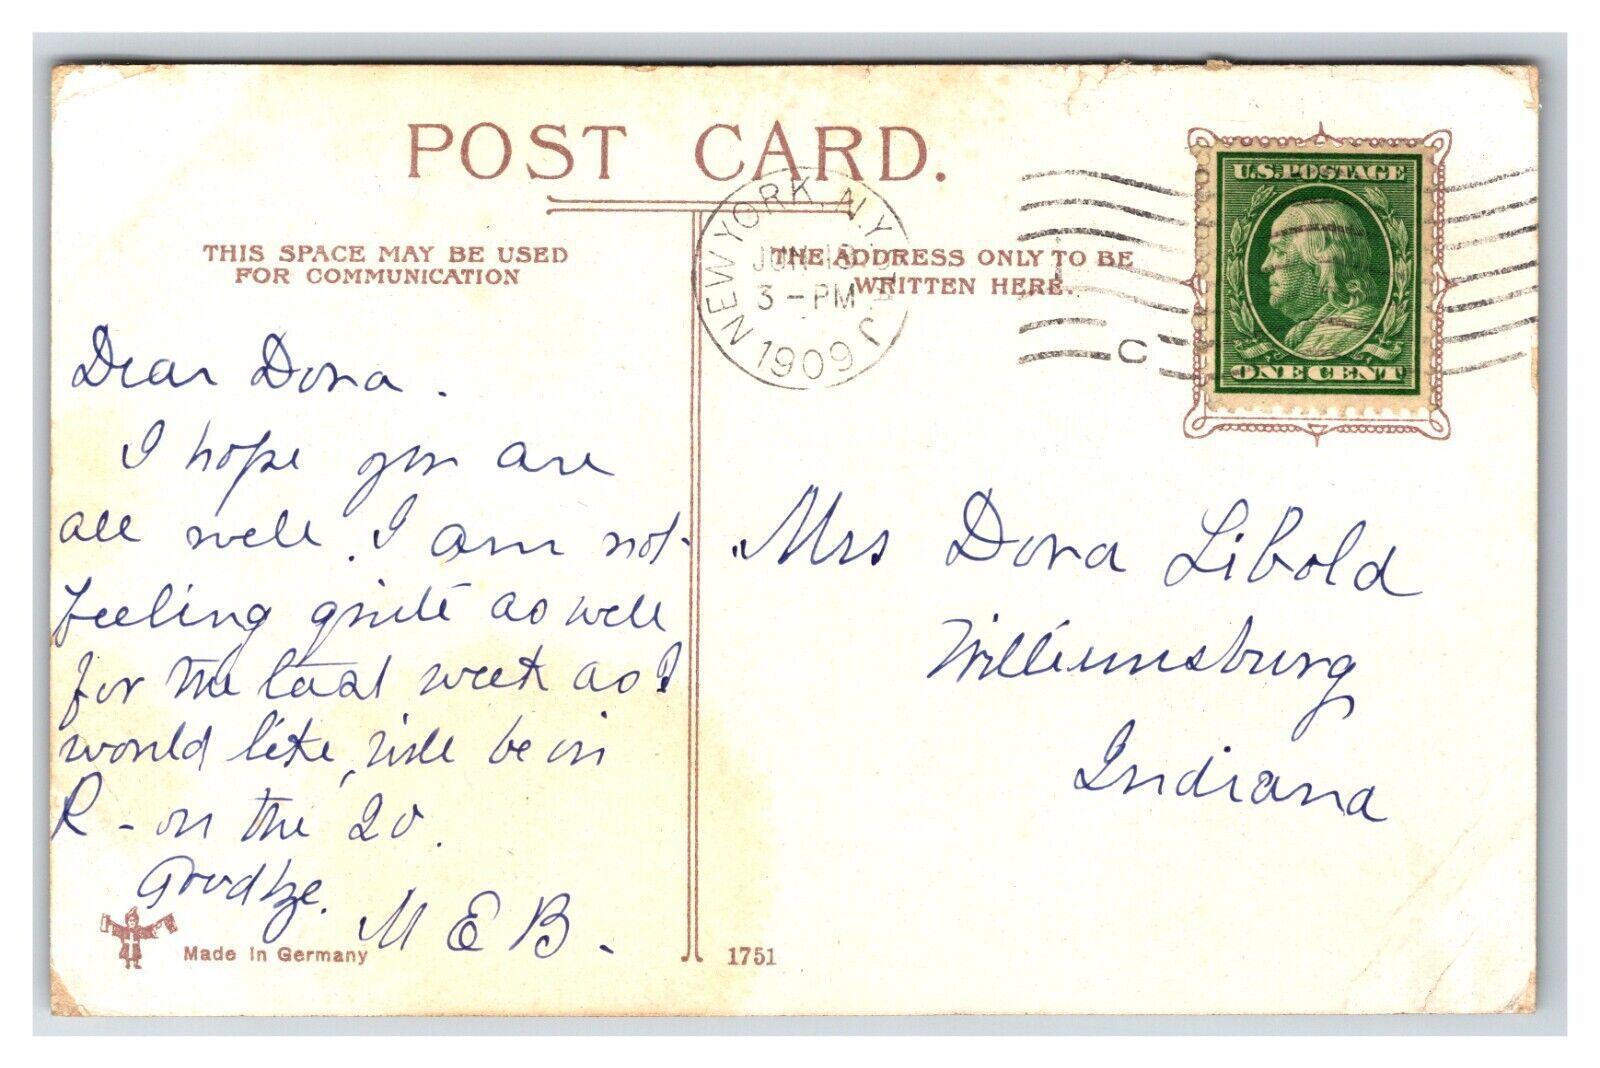 POST CARD.
THIS SPACE MAY BE USED
FOR COMMUNICATION
NEW YORK, N.Y.
JUN 
3 - PM
1909
THE ADDRESS ONLY TO BE
WRITTEN HERE.
C
U.S. POSTAGE
ONE CENT
Dear Dora.
I hope you are
all well. I am not
feeling quite as well
for the last week as I
would like, will be in
R - on the 20.
Goodbye.
M E B.
Mrs Dora Libold
Williamsburg
Indiana
Made in Germany
1751